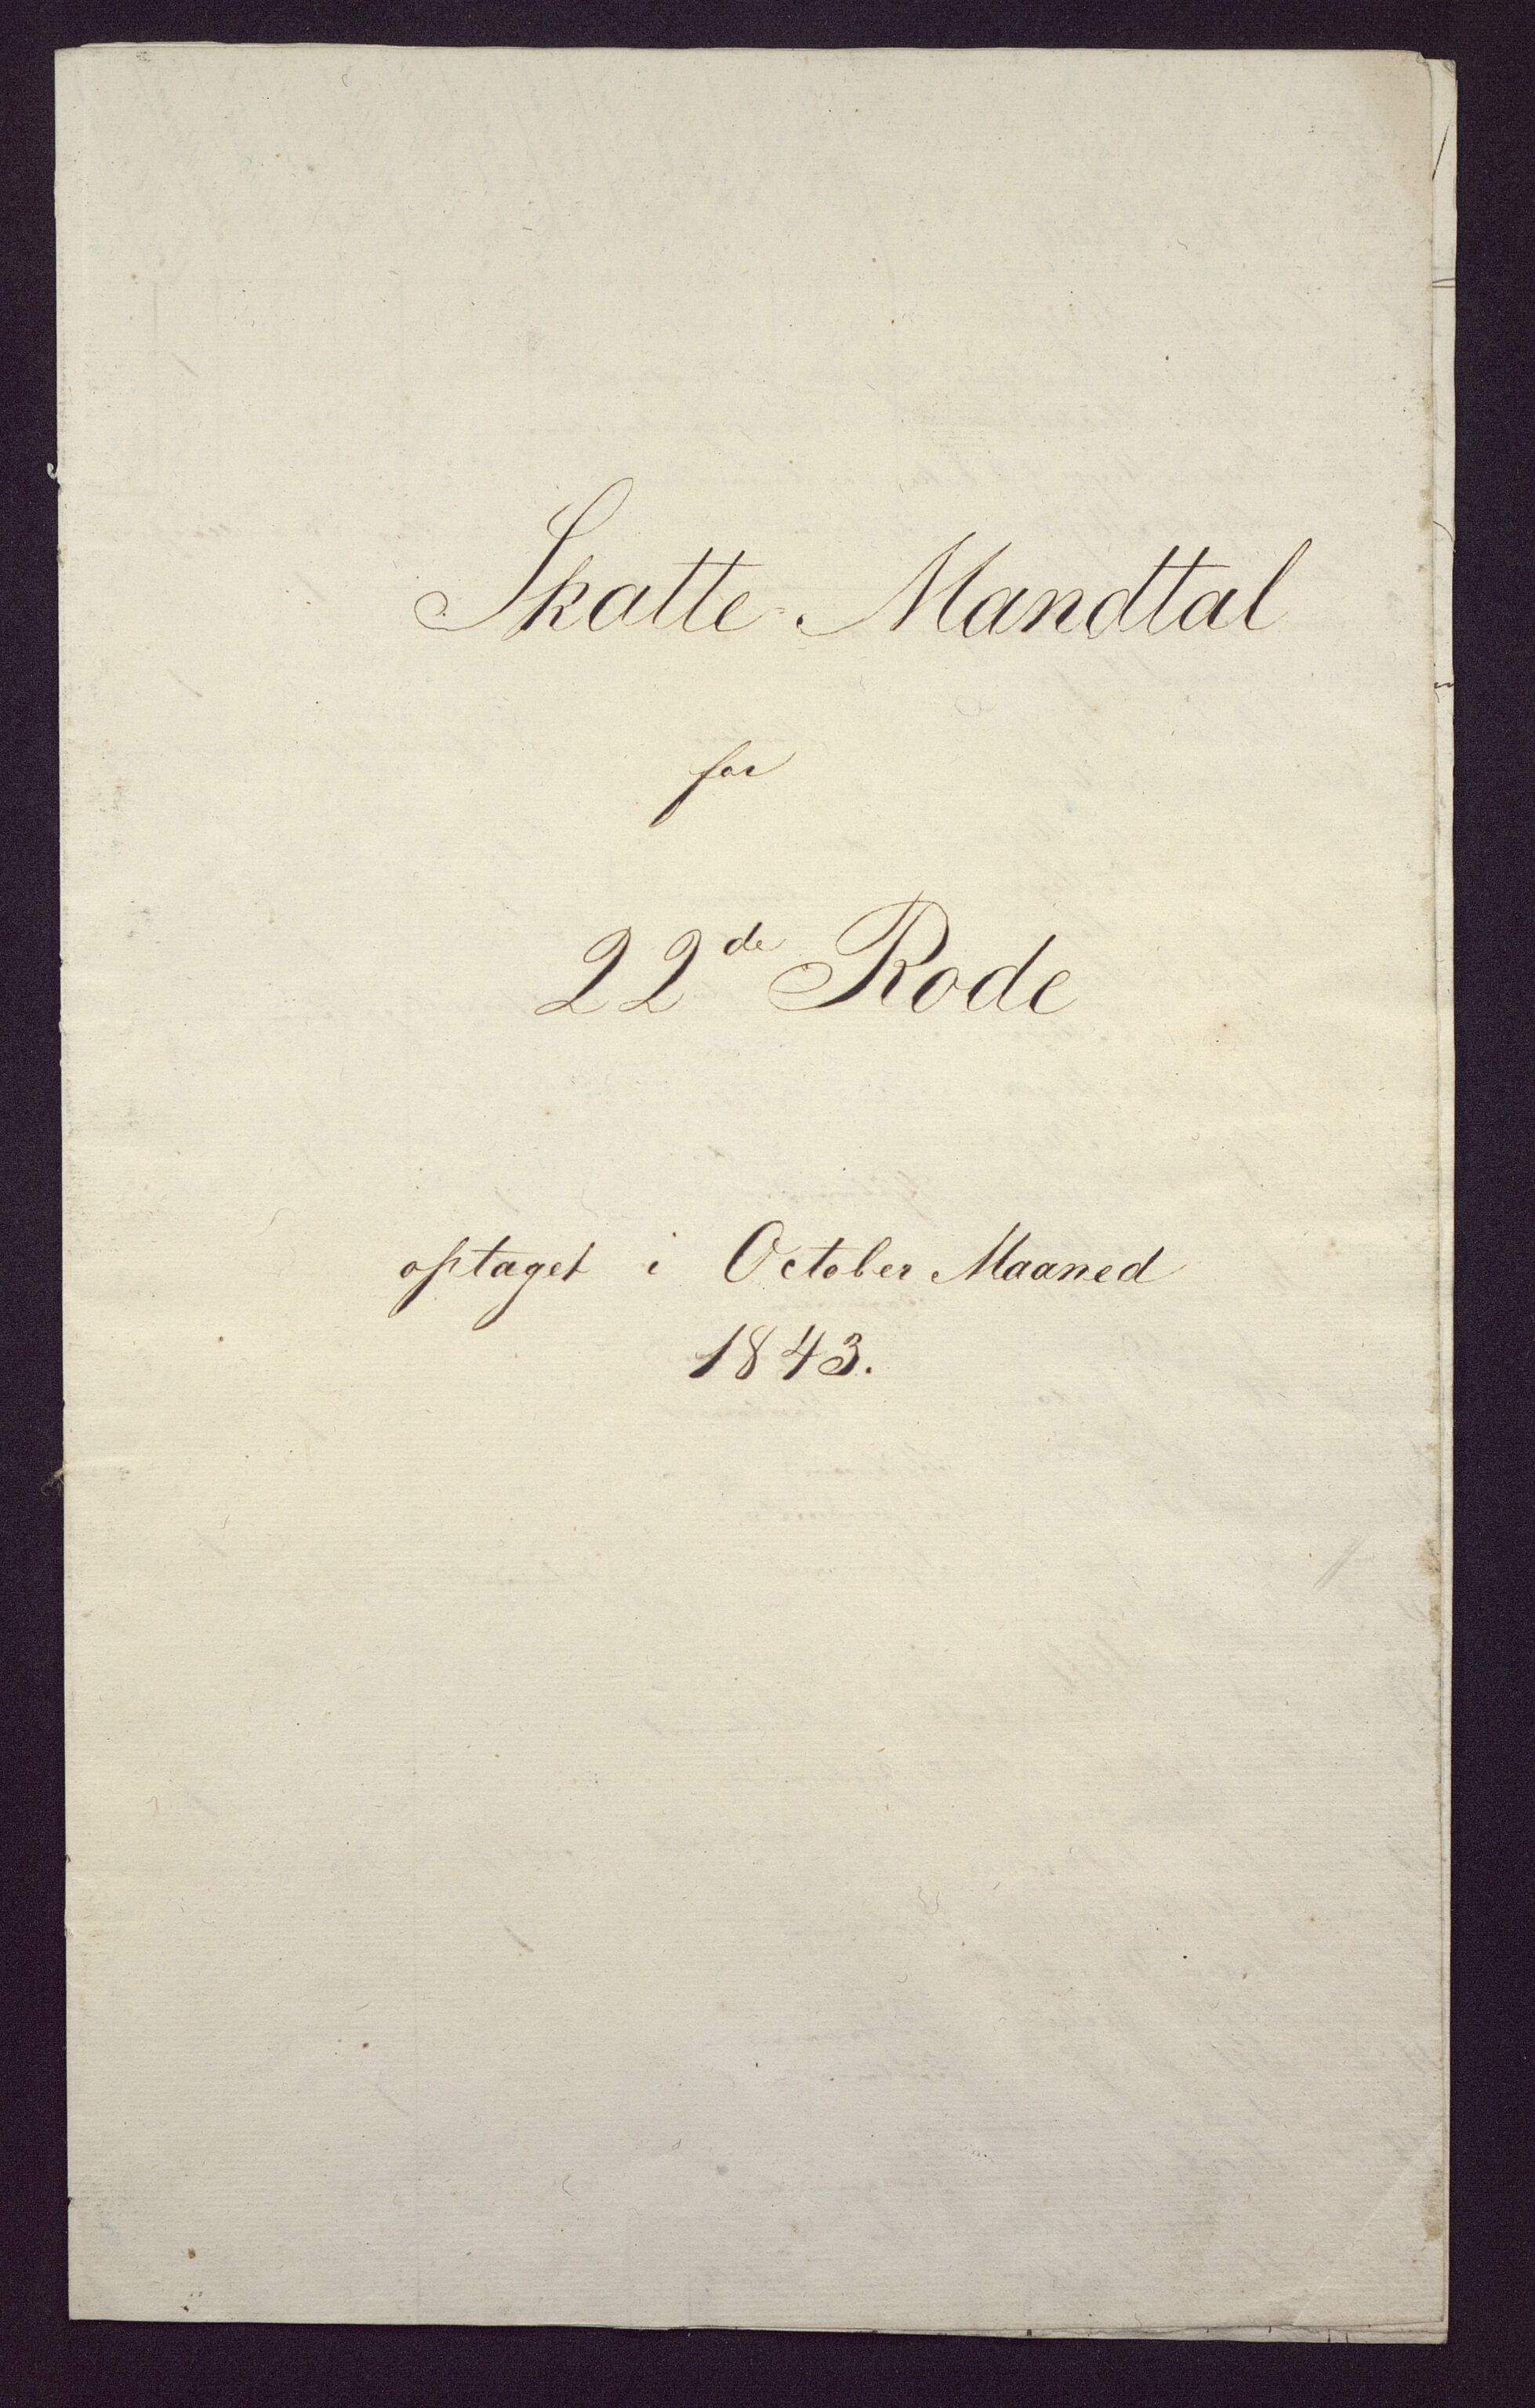 Skatte-Mandtal
for
22de Rode
optaget i October Maaned
1843.